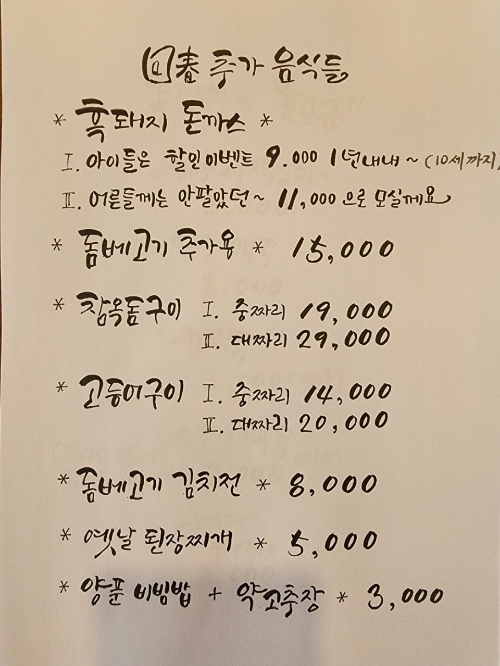 回春 추가 음식들
* 흑돼지 돈까스 *
I. 아이들은 할인이벤트 9.000 1년내내~ (10세까지)
II. 어른들께는 안팔았던~ 11,000으로 모실께요
* 돔베고기 추가용 * 15,000
* 참옥돔구이 I. 중짜리 19,000
II. 대짜리 29,000
* 고등어구이 I. 중짜리 14,000
II. 대짜리 20,000
* 돔베고기 김치전 * 8,000
* 옛날 된장찌개 * 5,000
* 양푼 비빔밥 + 약고추장 * 3,000